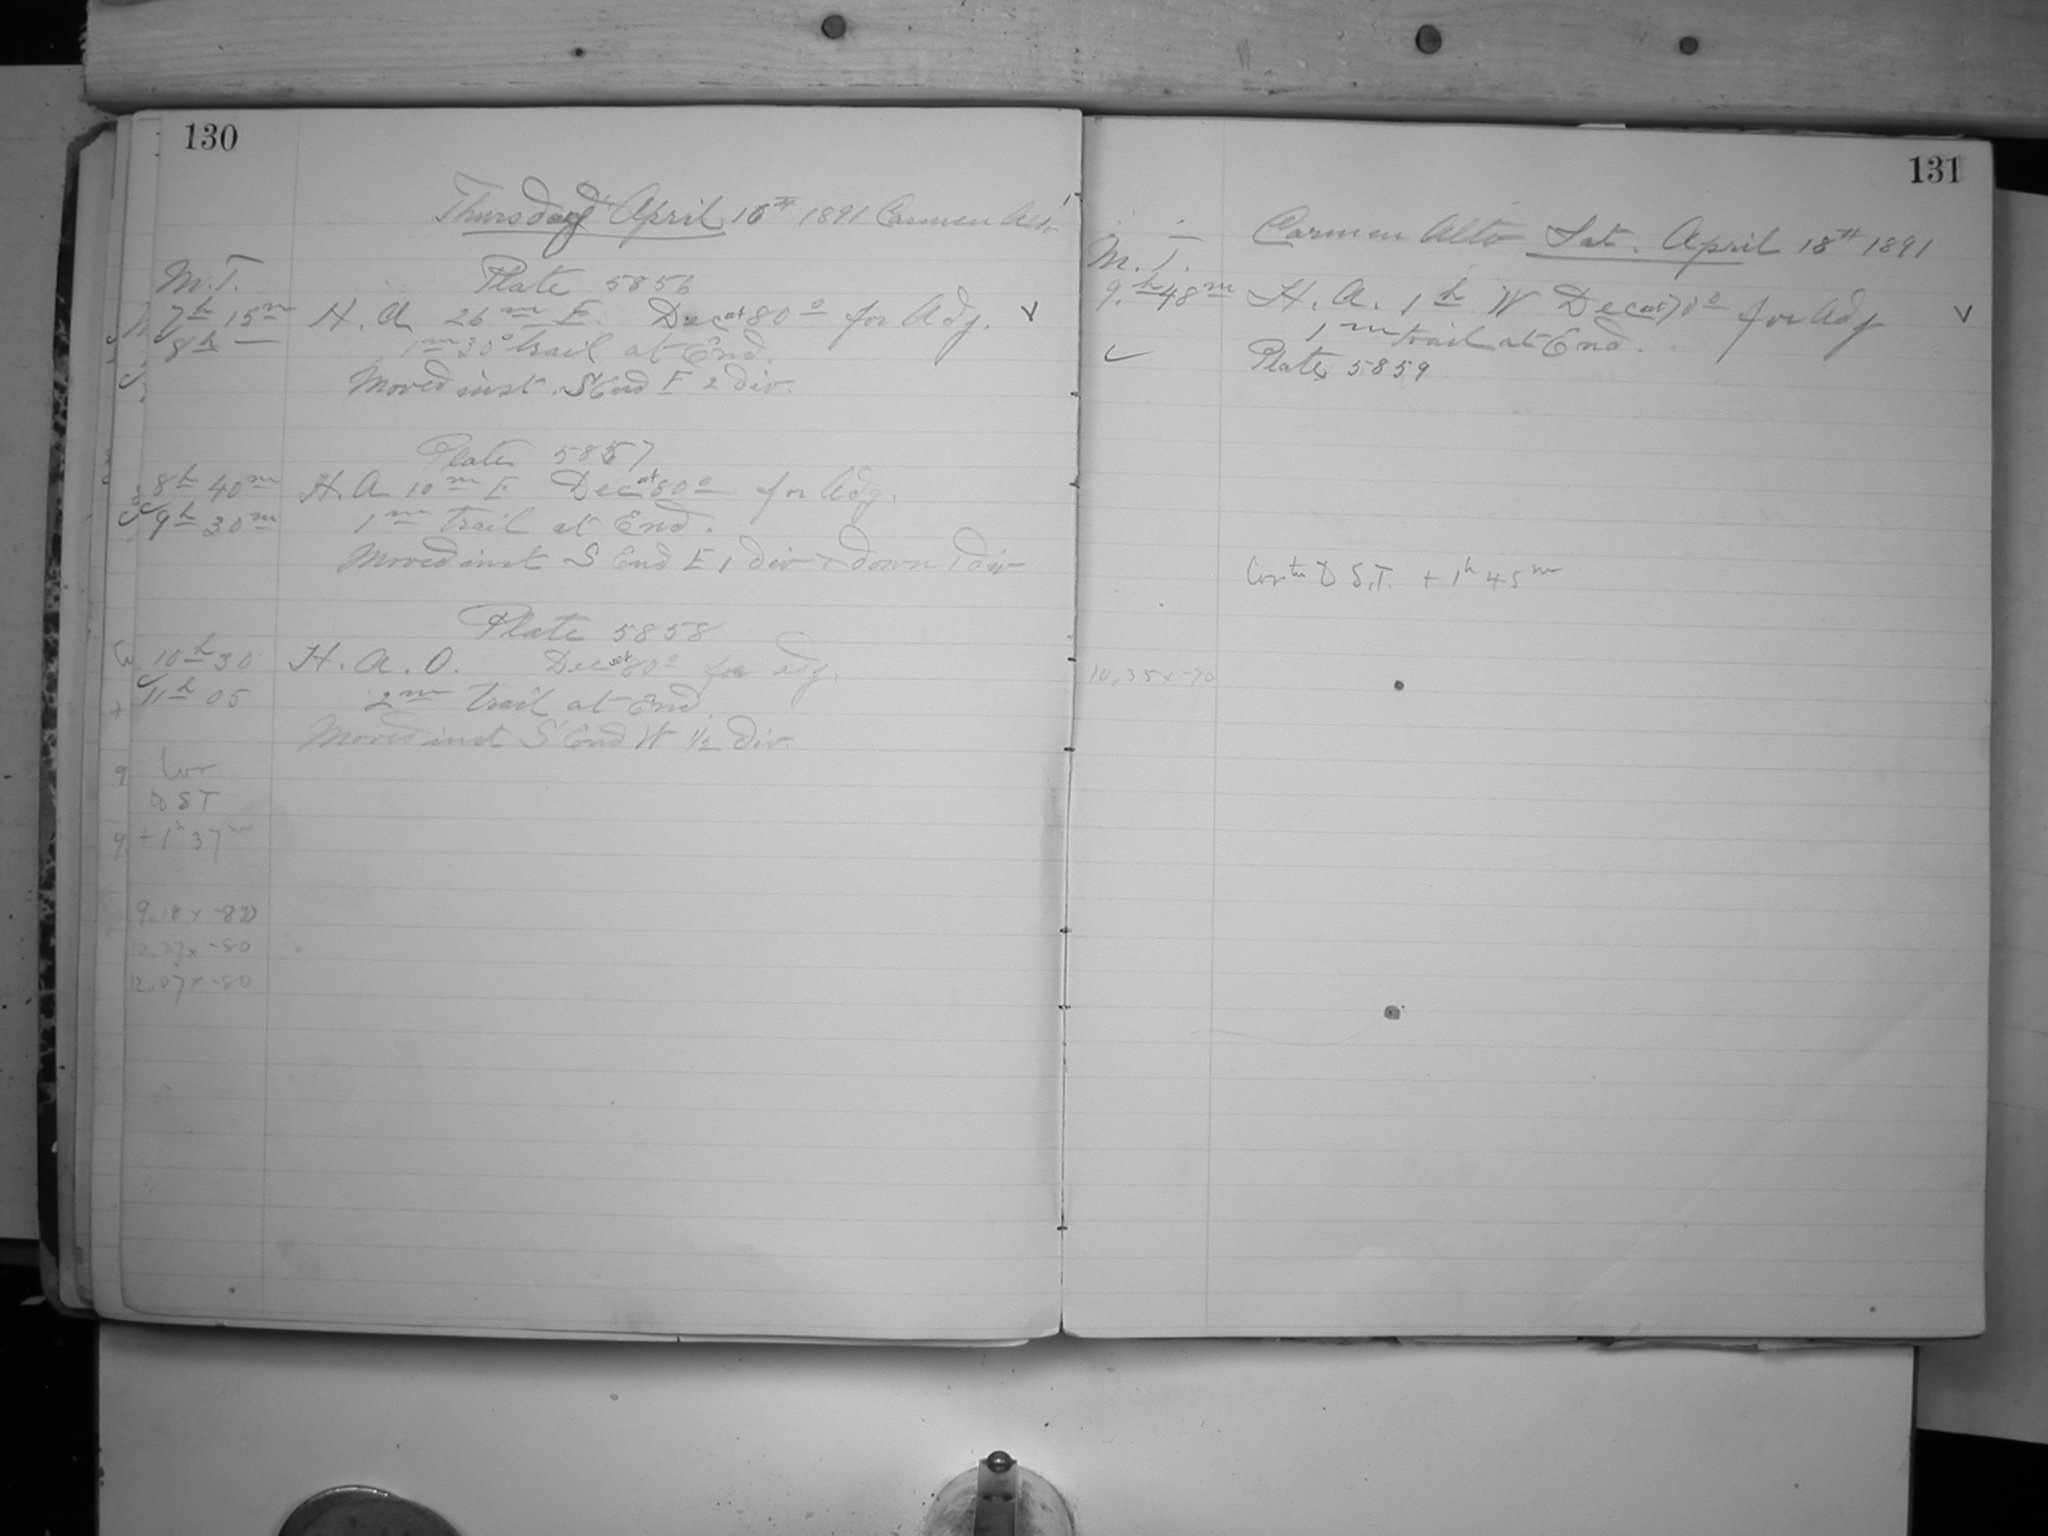 130
Thursday April 16th 1891 Carmen Alto
M.T. Plate 5856
7h 15m H. A 26m E. Dec at 80° for Adj. √
8h — 1m 30s trail at End.
Moved inst. S End E 2 div.
Plate 5857
8h 40m H. A 10m E Dec at 80° for Adj.
9h 30m 1m trail at End.
Moved inst S End E 1 div & down 1 div
Plate 5858
10h 30 H. A. 0. Dec at 80° for adj.
11h 05 2m trail at End
Moved inst S End W 1/2 div.
Cor
to S T
+ 1h 37m
9.18 x -80
10.27 x -80
12.07 x -80
131
Carmen Alto Sat. April 18th 1891
M. T.
9.h 48m H. A. 1h W Dec at 70° for Adj √
1m trail at End.
✓ Plate 5859
Corn to S.T. + 1h 45m
10.35 x -70